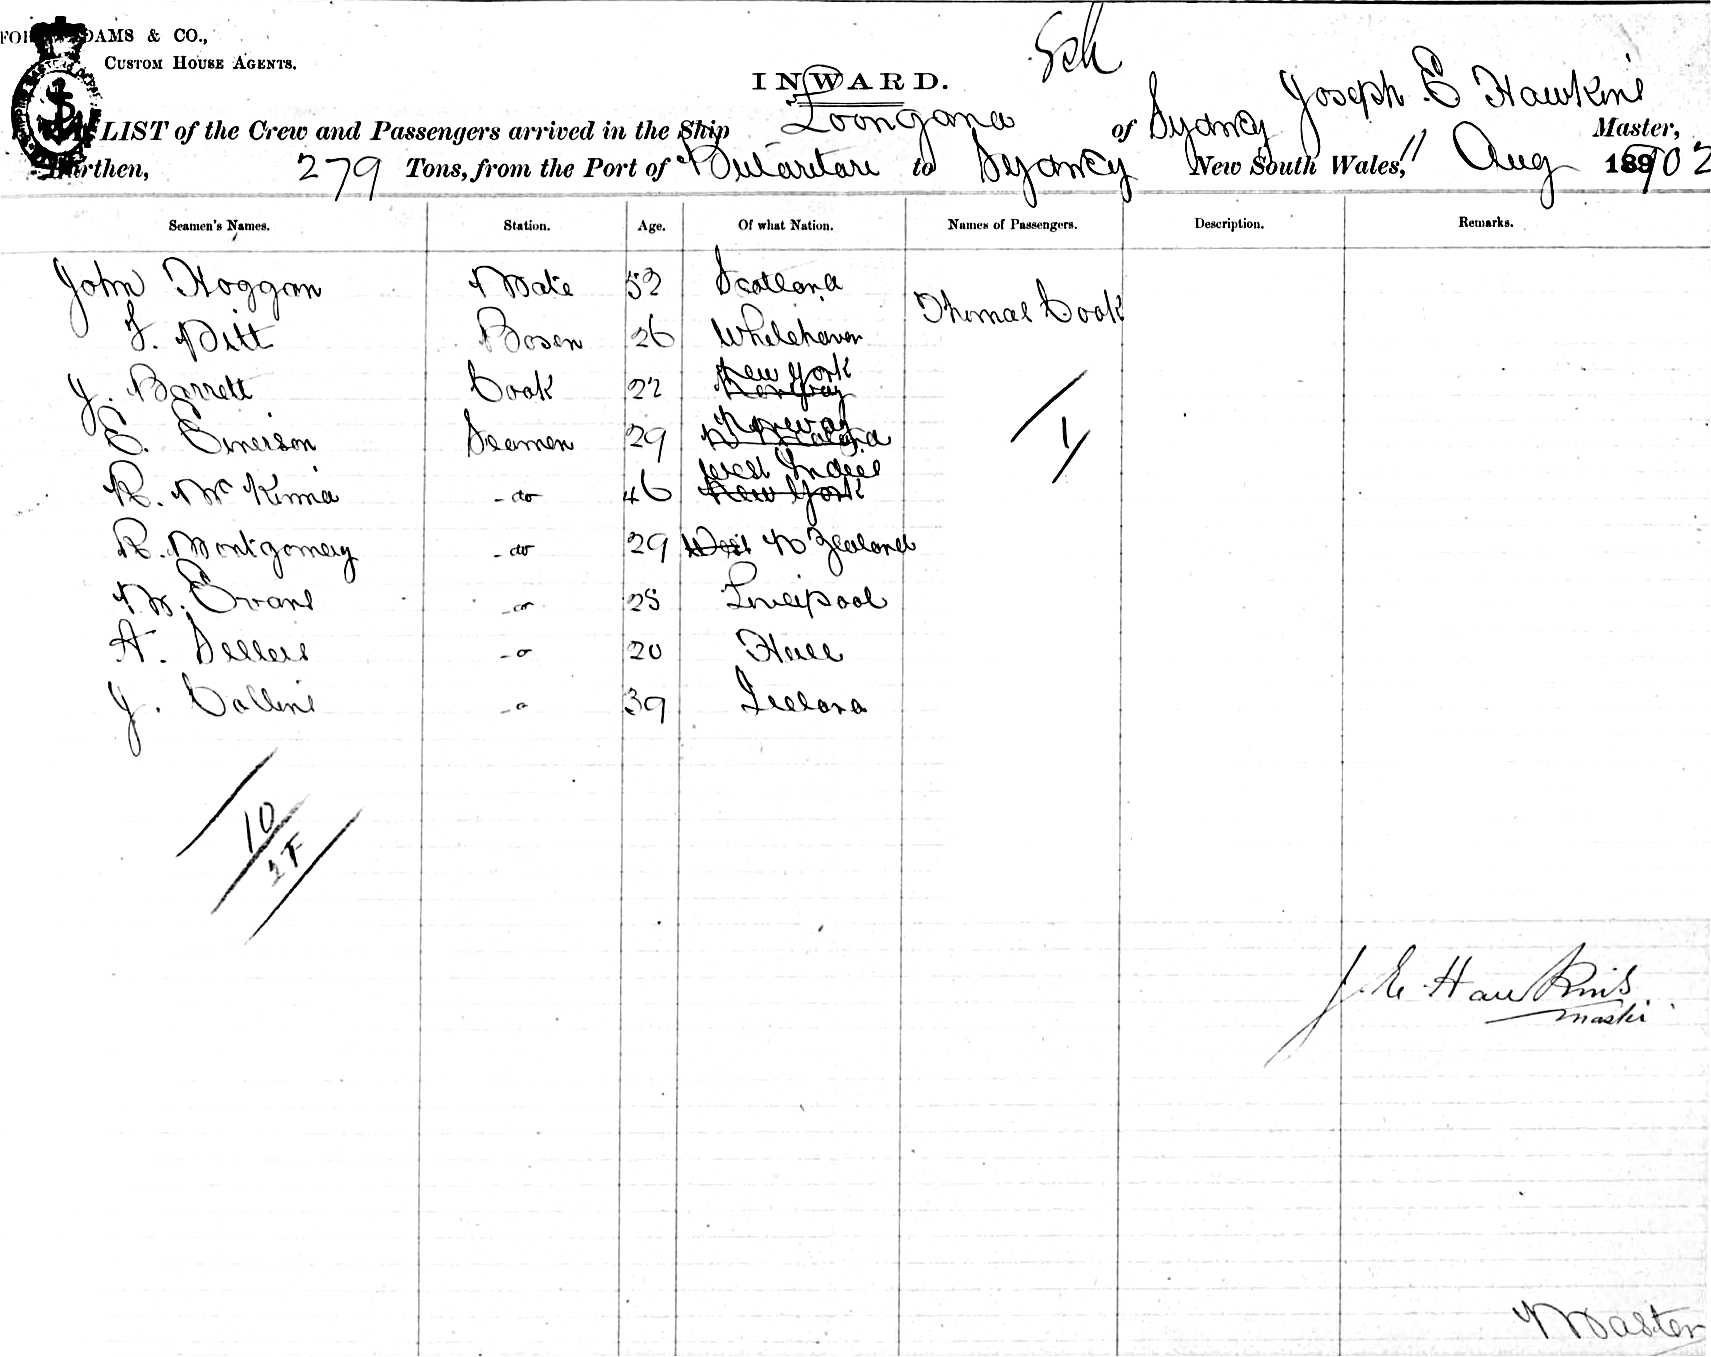 ADAMS & CO.,
CUSTOM HOUSE AGENTS.
Sch
INWARD.
LIST of the Crew and Passengers arrived in the Ship Loongana of Sydney Joseph E Hawkins Master,
Burthen, 279 Tons, from the Port of Butaritari to Sydney New South Wales, 11 Aug 1902
Seamen's Names. Station. Age. Of what Nation. Names of Passengers. Description. Remarks.
John Hoggan Mate 52 Scotland Thomas Cook
F. Pitt Bosen 26 Whitehaven
J. Barrett Cook 22 New York Norway
E. Emerson Seamen 29 Norway N Zealand
R. McKinna -do 46 West Indies New York
R. Montgomery -do 29 West N Zealand
M. Evans -do 25 Liverpool
A. Sellers -o 20 Hull
J. Collins -o 39 Ireland
1
10
2F
J. E. Hawkins
Master
Master